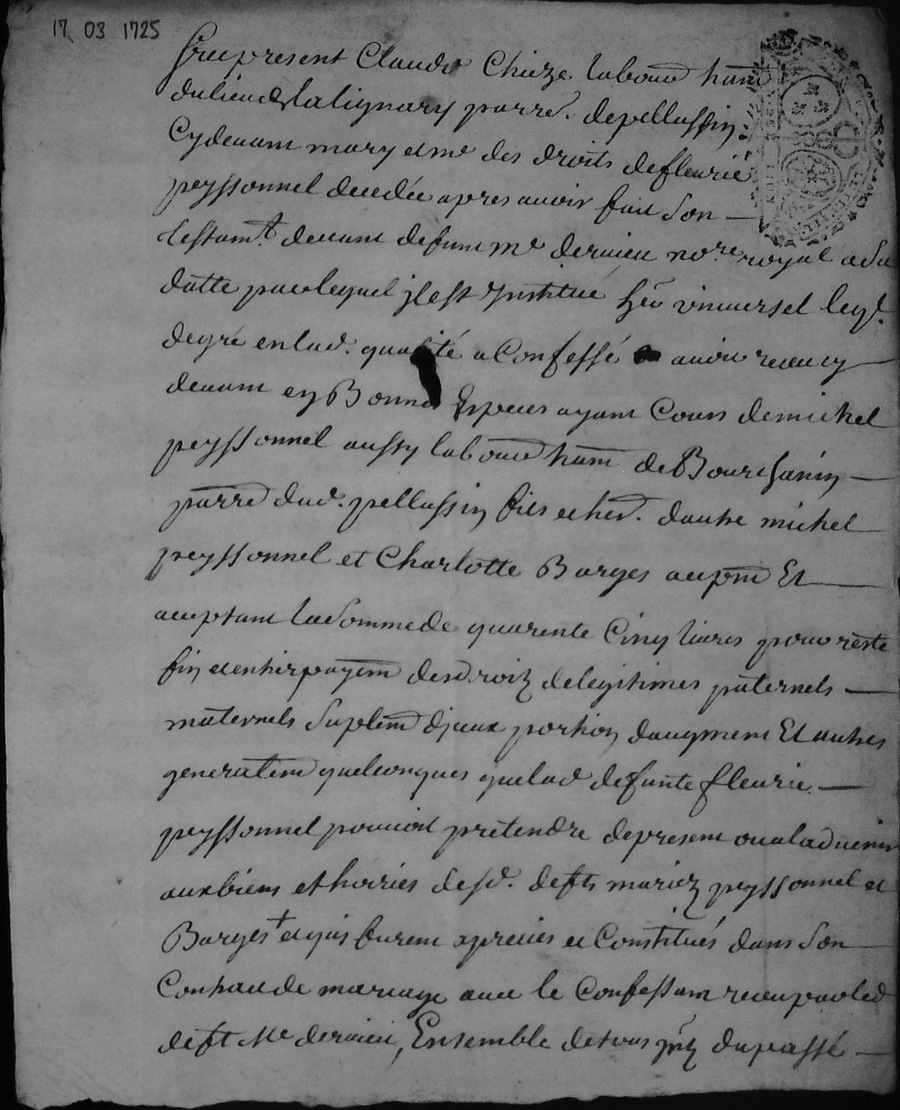 17 03 1725
present Claude Chieze laboure hant
du lieu de la lignary parre. de pellussin,
Cy devant mary et me des droits de fleurie
peyssonnel decedée apres avoir fait son
testamt. devant defunt me deravieu nore. royal a sa
datte par lequel jl est Jnstitué hér vniversel leql.
de gré en lad. qualité a Confessé avoir receu cy
devant en Bonnes Especes ayant Cours de michel
peyssonnel aussy laboure hant de Bourchanin
parre dud. pellussin fils et her. dautre michel
peyssonnel et Charlotte Barges au pnt Et
acceptant la Somme de quarente Cinq livres pour reste
fin et entier payemt des droitz de legitimes paternels
maternels Suplemt djceux portion daugment Et autres
generalemt quelconques que lad defunte fleurie
peyssonnel pouvoit pretendre de present ou a ladvenir
aux biens et hoiries desd. defts mariez peyssonnel et
Barges + et qui furent apreciés et Constitués dans Son
Contract de mariage avec le Confessant receu par led
deft Me deravieu, Ensemble de tous jntz du passé